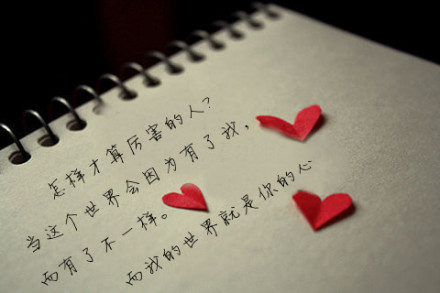 怎样才算厉害的人?
当这个世界会因为有了我,
而有了不一样。
而我的世界就是你的心